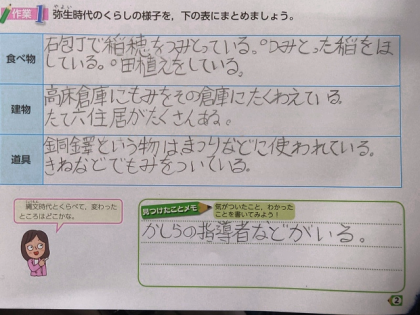 作業 1 弥生時代のくらしの様子を，下の表にまとめましょう。
食べ物
石包丁で稲穂をつみとっている。つみとった稲をほ
している。田植えをしている。
建物
高床倉庫にもみをその倉庫にたくわえている
たて穴住居がたくさんある。
道具
銅鐸という物はまつりなどに使われている。
きねなどでもみをついている。
縄文時代とくらべて，変わった
ところはどこかな。
見つけたことメモ
気がついたこと，わかった
ことを書いてみよう！
かしらの指導者などがいる。
2